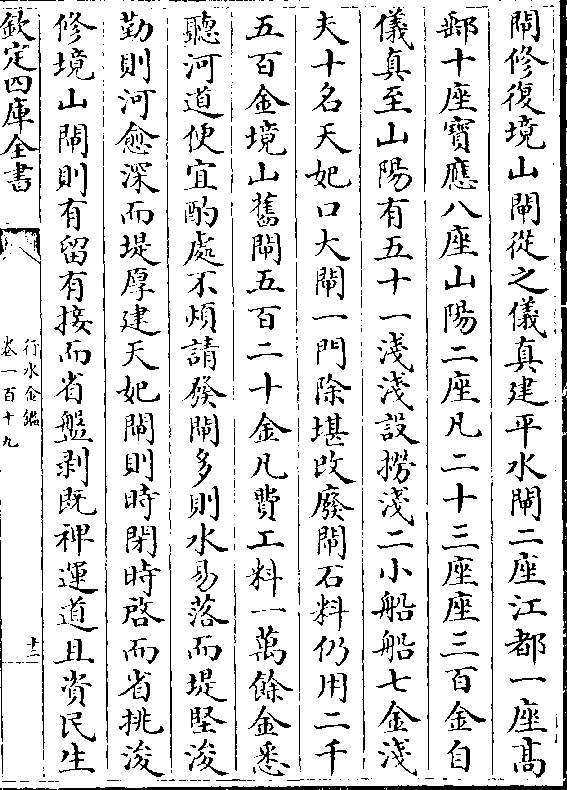 閘修復境山閘從之儀真建平水閘二座江都一座髙
郵十座寶應八座山陽二座凡二十三座座三百金自
儀真至山陽有五十一淺淺設撈淺二小船船七金淺
夫十名天妃口大閘一門除堪改廢閘石料仍用二千
五百金境山舊閘五百二十金凡費工料一萬餘金悉
聽河道便宜酌處不煩請發閘多則水易落而堤堅浚
勤則河愈深而堤厚建天妃閘則時閉時啓而省挑浚
修境山閘則有留有接而省盤剥既裨運道且資民生
欽定四庫全書
行水金鑑
卷一百十九
十二